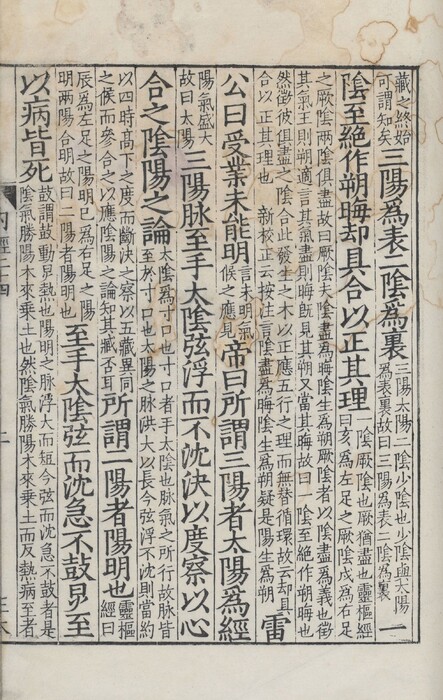 藏之終始可謂知矣三陽爲表二陰爲裏三陽太陽二陰少陰也少陰與太陽爲表裏故曰三陽爲表二陰爲裏一
陰至絶作朔晦却具合以正其理一陰厥陰也厥猶盡也靈樞經曰亥爲左足之厥陰戌爲右足
之厥陰兩陰俱盡故曰厥陰夫陰盡爲晦陰生爲朔厥陰者以陰盡爲義也徵
其氣王則朔適言其氣盡則晦既見其朔又當其晦故曰一陰至絶作朔晦也
然徵彼俱盡之陰合此發生之木以正應五行之理而無替循環故云却具
合以正其理也 新校正云按注言陰盡爲晦陰生爲朔疑是陽生爲朔雷
公曰受業未能明言未明氣候之應見帝曰所謂三陽者太陽爲經
陽氣盛大故曰太陽三陽脉至手太陰弦浮而不沈決以度察以心
合之陰陽之論太陰爲寸口也寸口者手太陰也脉氣之所行故脉皆至於寸口也太陽之脉洪大以長今弦浮不沈則當約
以四時高下之度而斷決之察以五藏異同之候而參合之以應陰陽之論知其藏否耳所謂二陽者陽明也靈樞經曰
辰爲左足之陽明巳爲右足之陽明兩陽合明故曰二陽者陽明也至手太陰弦而沈急不鼓炅至
以病皆死鼓謂鼓動炅熱也陽明之脉浮大而短今弦而沈急不鼓者是陰氣勝陽木來乘土也然陰氣勝陽木來乘土而反熱病至者